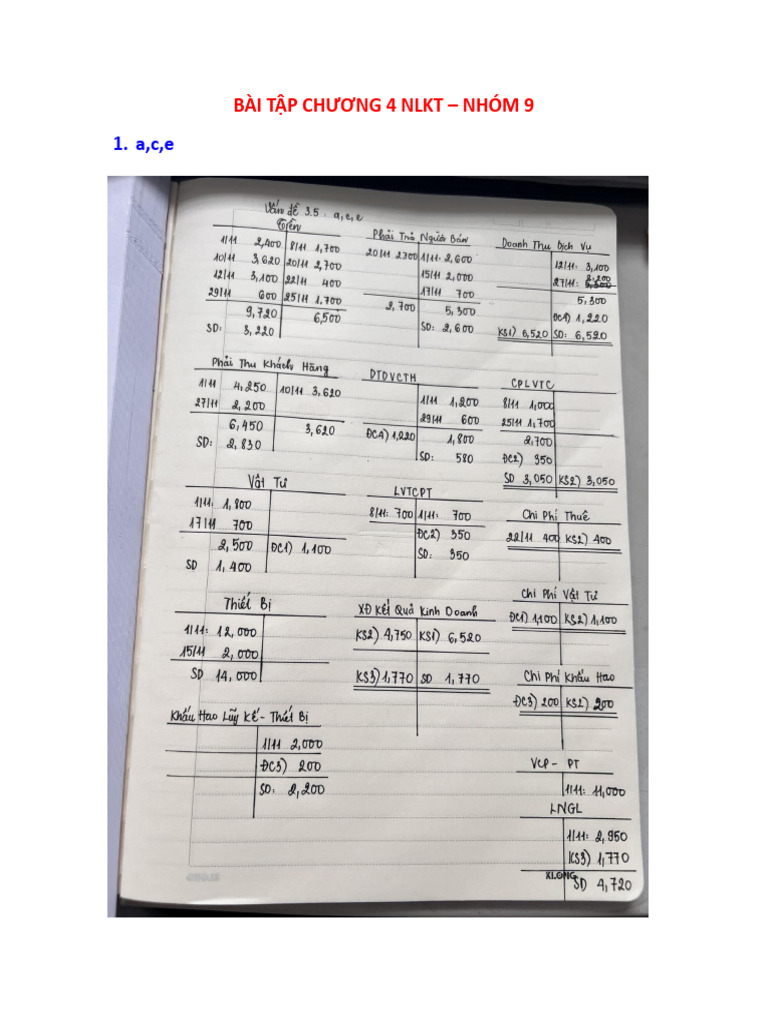 BÀI TẬP CHƯƠNG 4 NLKT – NHÓM 9
1. a,c,e
Vấn đề 3.5 : a, c, e
Tiền
1/11 2,400 8/11 1,700
10/11 3,620 20/11 2,700
12/11 3,100 22/11 400
29/11 600 25/11 1,700
9,720 6,500
SD: 3,220
Phải Trả Người Bán
20/11 2700 1/11: 2,600
15/11 2,000
17/11 700
2,700 5,300
SD: 2,600
Doanh Thu Dịch Vụ
12/11: 3,100
2,200
27/11:
5,300
ĐC4) 1,220
KS1) 6,520 SD: 6,520
Phải Thu Khách Hàng
1/11 4,250 10/11 3,620
27/11 2,200
6,450 3,620
SD: 2,830
DTDVCTH
1/11 1,200
29/11 600
ĐC4) 1,220 1,800
SD: 580
CPLVTC
8/11 1,000
25/11 1,700
2,700
ĐC2) 350
SD 3,050 KS2) 3,050
Vật Tư
1/11: 1,800
17/11 700
2,500 ĐC1) 1,100
SD 1,400
LVTCPT
8/11: 700 1/11: 700
ĐC2) 350
SD: 350
Chi Phí Thuê
22/11 400 KS2) 400
Thiết Bị
1/11: 12,000
15/11 2,000
SD 14,000
XĐ Kết Quả Kinh Doanh
KS2) 4,750 KS1) 6,520
KS3) 1,770 SD 1,770
Chi Phí Vật Tư
ĐC1) 1,100 KS2) 1,100
Chi Phí Khấu Hao
ĐC3) 200 KS2) 200
Khấu Hao Lũy Kế - Thiết Bị
1/11 2,000
ĐC3) 200
SD: 2,200
VCP - PT
1/11: 11,000
LNGL
1/11: 2,950
KS3) 1,770
SD 4,720
KLONG